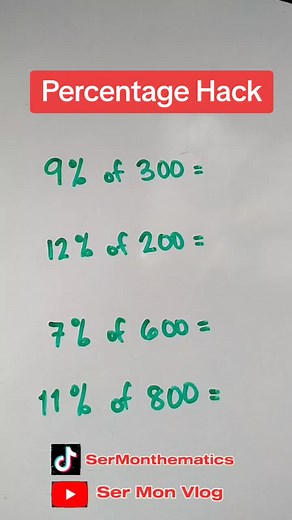 Percentage Hack
9% of 300 =
12% of 200 =
7% of 600 =
11% of 800 =
SerMonthematics
Ser Mon Vlog